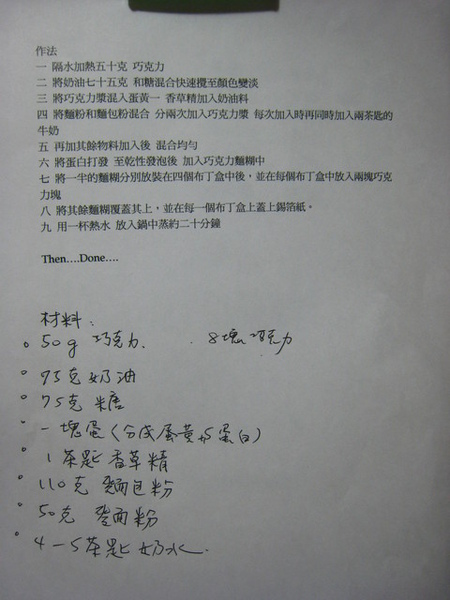 作法
一 隔水加熱五十克 巧克力
二 將奶油七十五克 和糖混合快速攪至顏色變淡
三 將巧克力漿混入蛋黃一 香草精加入奶油料
四 將麵粉和麵包粉混合 分兩次加入巧克力漿 每次加入時再同時加入兩茶匙的
牛奶
五 再加其餘物料加入後 混合均勻
六 將蛋白打發 至乾性發泡後 加入巧克力麵糊中
七 將一半的麵糊分別放裝在四個布丁盒中後，並在每個布丁盒中放入兩塊巧克
力塊
八 將其餘麵糊覆蓋其上，並在每一個布丁盒上蓋上錫箔紙。
九 用一杯熱水 放入鍋中蒸約二十分鐘
Then....Done....
材料：
50g 巧克力. 8塊巧克力
75克奶油
75克 糖
一塊蛋（分成蛋黃与蛋白）
1茶匙香草精
110克 麵包粉
50克 麵粉
4－5茶匙奶水.